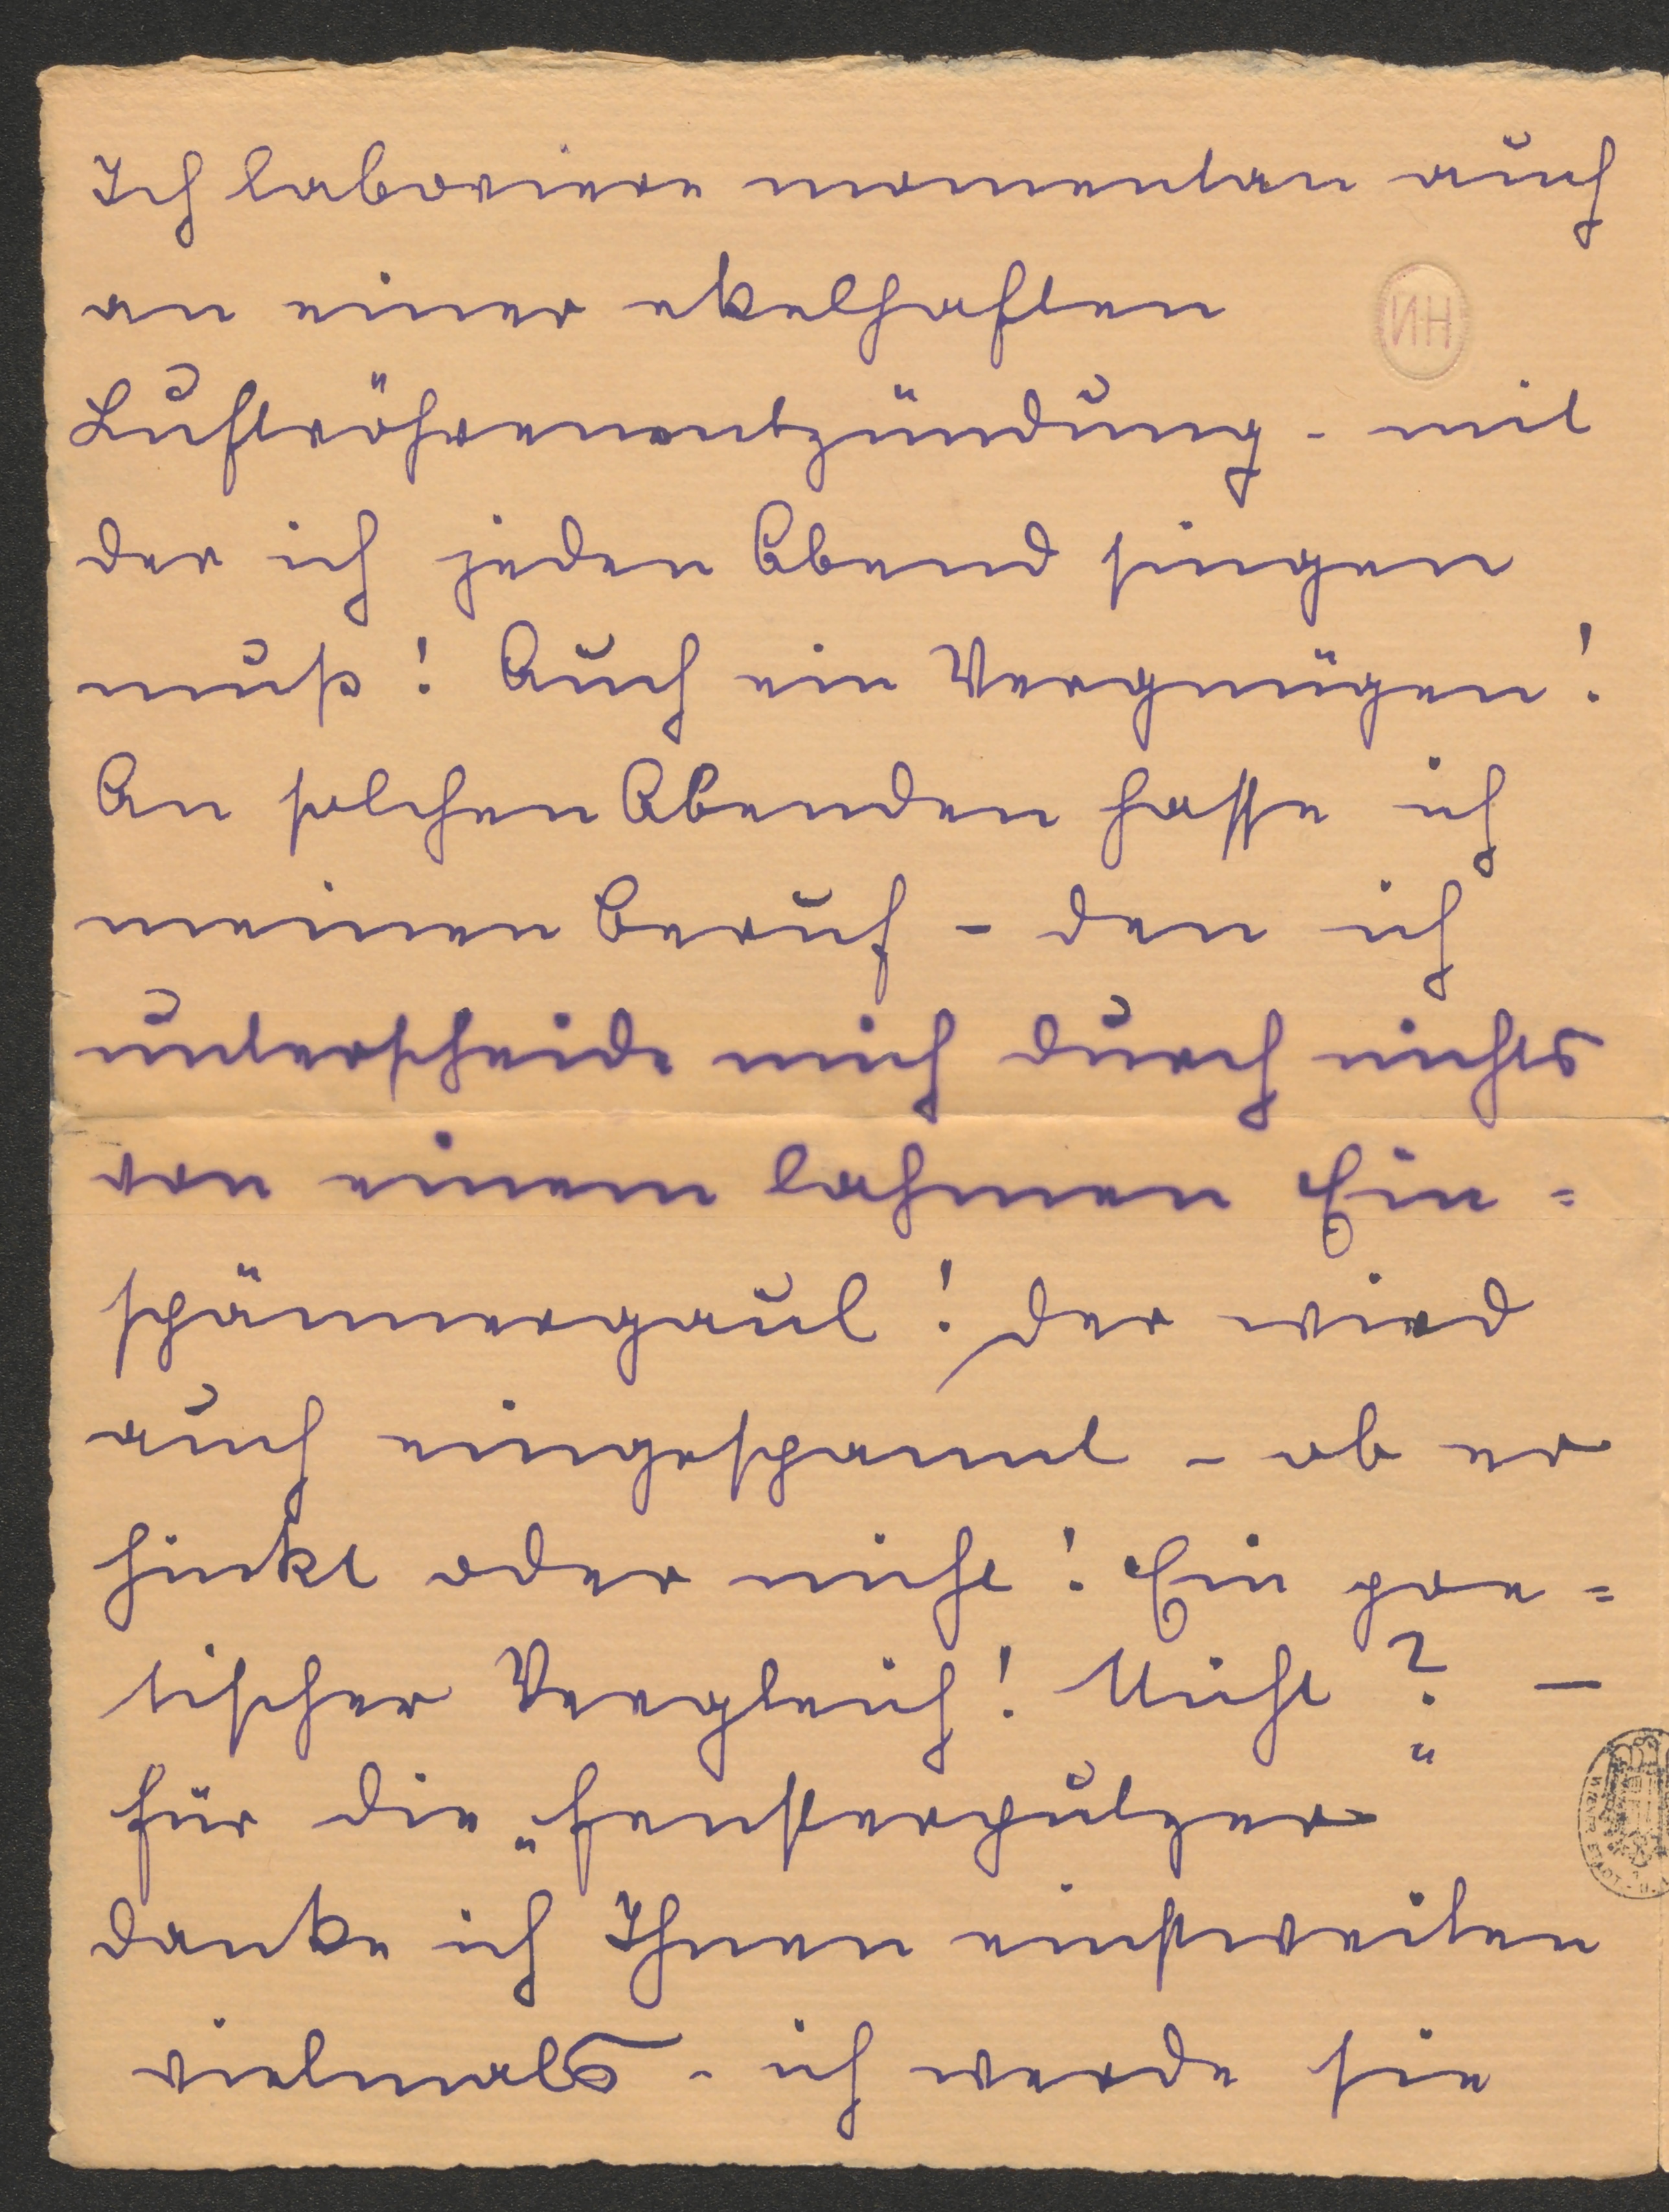 Ich laboriere momentan auch
an einer ekelhaften
HN
Luftröhrenentzündung - mit
der ich jeden Abend singen
muß! Auch ein Vergnügen!
An solchen Abenden hasse ich
meinen Beruf - denn ich
unterscheide mich durch nichts
von einem lahmen Ein=
spännergaul! Der wird
auch eingespannt - ob er
hinkt oder nicht! Ein poe=
tischer Vergleich! Nicht? —
für die „Fensterputzer“
danke ich Ihnen einstweilen
vielmals - ich werde sie